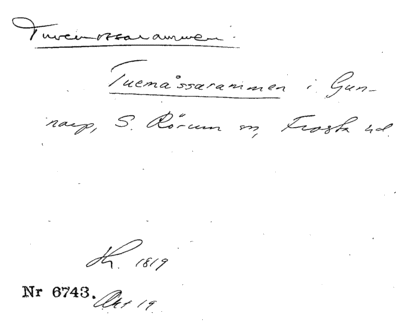 Tuvemossarammen.
Tuemåssarammen i Gun-
narp, S. Rörum sn, Frosta hd.
Sk. 1819
Nr 6743. Akt 19